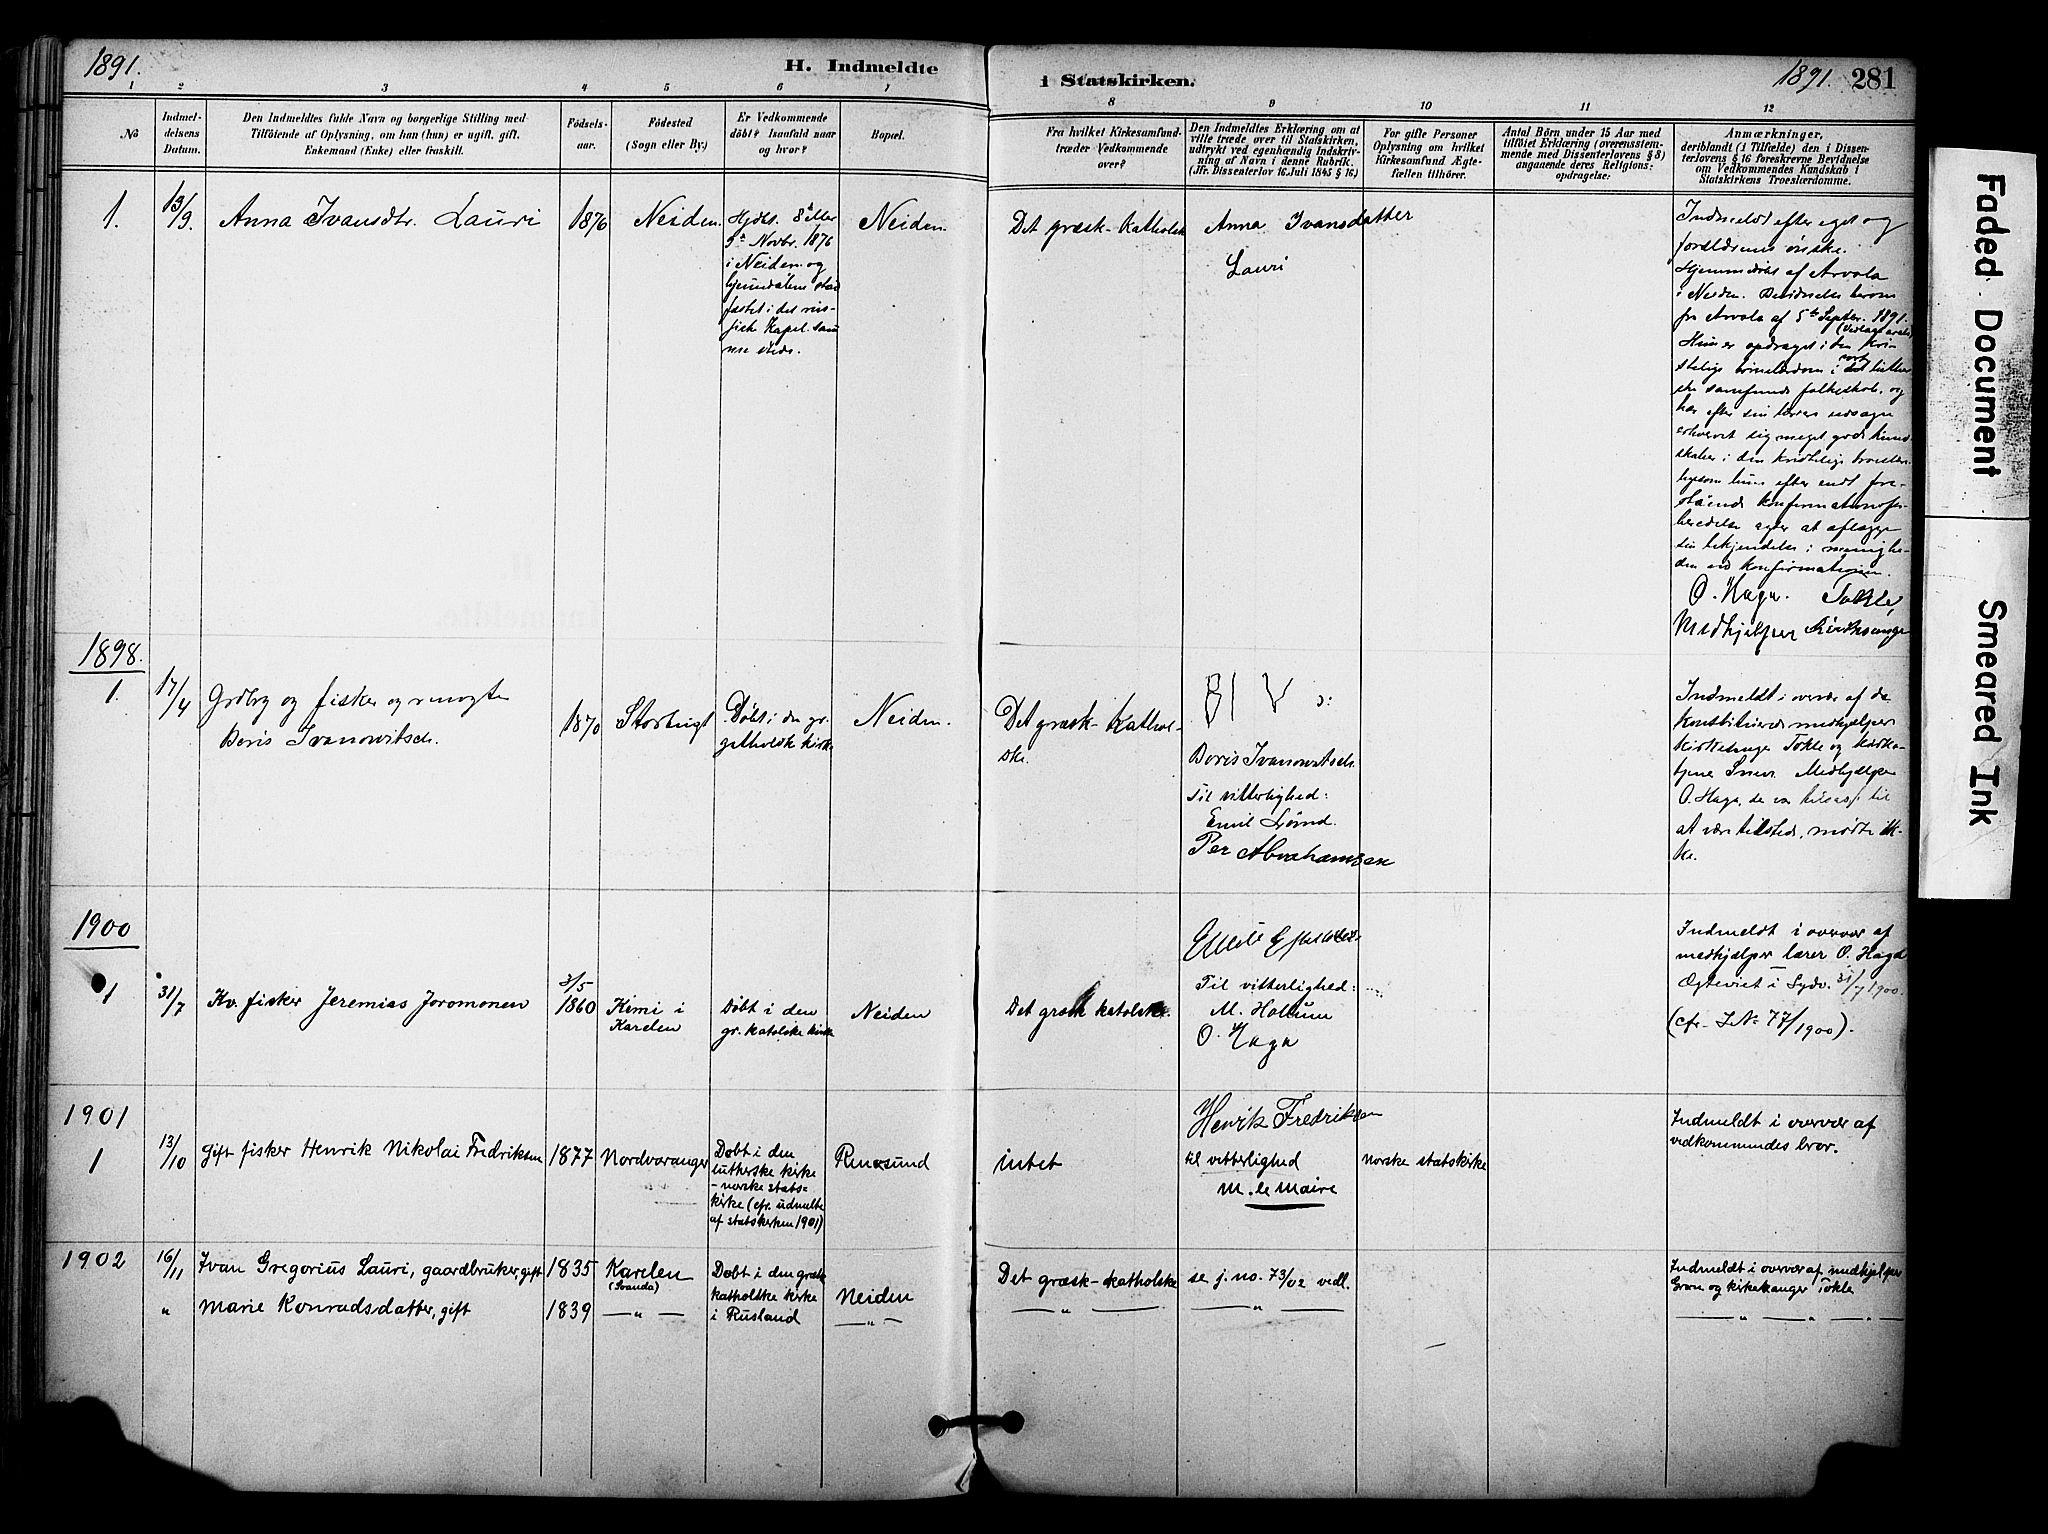 1891.
H. Indmeldte
i Statskirken.
1891. 281
1 2 3 4 5 6 7 8 9 10 11 12
No
Indmel-
delsens
Datum.
Den Indmeldtes fulde Navn og borgerlige Stilling med
Tilføiende af Oplysning, om han (hun) er ugift, gift,
Enkemand (Enke) eller fraskilt.
Fødsels-
aar.
Fødested
(Sogn eller By.)
Er Vedkommende
døbt? Isaafald naar
og hvor?
Bopæl.
Fra hvilket Kirkesamfund
træder Vedkommende
over?
Den Indmeldtes Erklæring om at
ville træde over til Statskirken,
udtrykt ved egenhændig Indskriv-
ning af Navn i denne Rubrik.
(Jfr. Dissenterlov 16. Juli 1845 § 16.)
For gifte Personer
Oplysning om hvilket
Kirkesamfund Ægte-
fællen tilhører.
Antal Børn under 15 Aar med
tilføiet Erklæring (overensstem-
mende med Dissenterlovens § 8)
angaaende deres Religions-
opdragelse:
Anmærkninger,
deriblandt (i Tilfælde) den i Dissen-
terlovens § 16 foreskrevne Bevidnelse
om Vedkommendes Kundskab i
Statskirkens Troeslærdomme.
1.
13/9.
Anna Ivansdtr. Lauri
1876
Neiden.
Hjdbt. 8de eller
9de Novbr. 1876
i Neiden og
hjemmedåben stad
fæstet i det rus-
siske Kapel sam
me steds.
Neiden.
Det græsk-Katholsk
Anna Ivansdatter
Lauri
Indmeldt efter eget og
forældrenes ønske.
Hjemmedøbt af Arvola
i Neiden. Bevidnelse herom
fra Arvola af 5te Septbr. 1891.
Hun er opdraget i den kri-
stelige børnelærdom i
samfunds folkeskole, og
har efter sin lærers udsagn
erhvervet sig meget gode kund-
skaber i den kristelige
ligesom hun efter endt fore-
stående konfirmationsfor-
beredelse agter at aflægge
sin bekjendelse i menighe-
den ved konfirmationen.
O. Haga. Tokle,
Medhjelper Kirkesanger
1898.
1.
17/4
Grdbrg og fisker og
Boris Ivanowitsch.
1870
Døbt i den gr.
katholsk kirke
Neiden.
Det græsk-Kathol-
ske.
BI V ɔ:
Boris Ivanowitsch.
Til vitterlighed:
Emil
Per Abrahamsen
Indmeldt i overvær af de
konstituerede medhjælpere
kirkesanger Tokle og kirke-
tjener Medhjælper
O. Haga, der var tilsagt til
at være tilstede, mødte ik-
ke.
1900
1
31/7
Kv. fisker Jeremias Joromonen
3/5
1860
Kemi i
Karelen
Døbt i den
gr. katolske kirke
Neiden
Det græsk katolske.
Til vitterlighed:
M. Hollum
O. Haga
Indmeldt i overvær af
medhjælper lærer O. Haga
Ægteviet i Sydv. 31/7 1900.
(cfr. J.No 77/1900).
1901
1
13/10
Gift fisker Henrik Nikolai Fredriksen
1877
Nordvaranger
Døbt i den
lutherske kirke
- norske stats-
kirke (cfr. udmeldte
af statskirken 1901)
Renøsund
intet
Henrik Fredriksen
til vitterlighed
M. le Maire
norske statskirke
Indmeldt i overvær af
vedkommendes bror.
1902
16/11
Ivan Gregorius Lauri, gaardbruker, gift
1835
Karelen
Døbt i den græsk
katholske kirke
i Rusland
Neiden
Det græsk-katholske
se j. no. 73/02 vedl.
Indmeldt i overvær af medhjelper
Gran og kirkesanger Tokle
"
Marie Konradsdatter, gift
1839
— " —
— " —
— " —
— " —
— " — " — " —
Faded Document
Smeared Ink